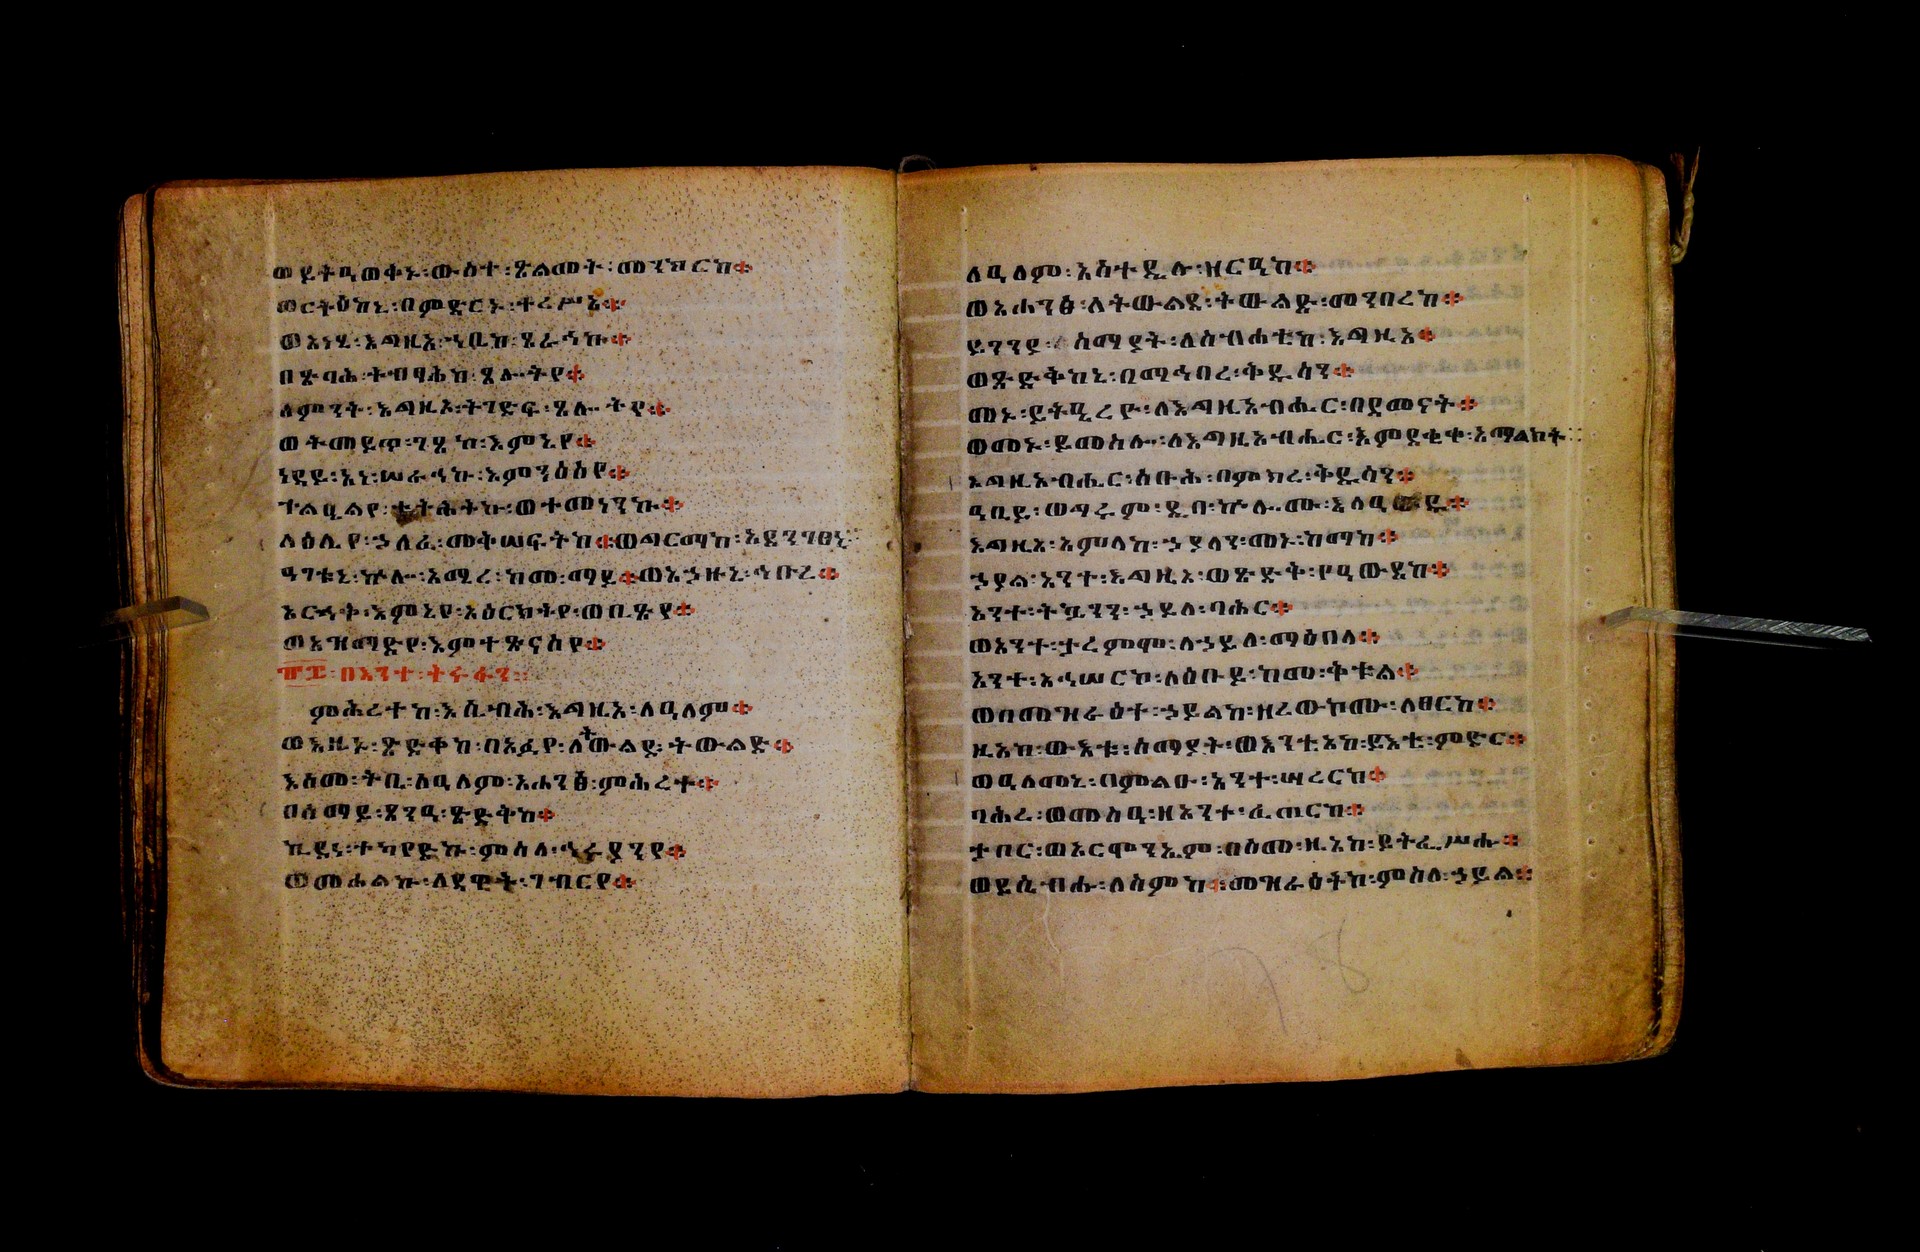 ወይትዓወቅኑ፡ውስተ፡ጽልመት፡መንክርከ፨
ወርትዕከኒ፡በምድርኑ፡ተረሥዐ፨
ወአነሂ፡እግዚአ፡ኀቤከ፡ጸራኅኩ፨
በጽባሕ፡ትበጽሕከ፡ጸሎትየ፨
ለምንት፡እግዚኦ፡ትገድፍ፡ጸሎትየ፨
ወትመይጥ፡ገጸከ፡እምኔየ፨
ነዳይ፡አነ፡ሠራኅኩ፡እምንዕስየ፨
ተልዒልየ፡ተትሕትኩ፡ወተመነንኩ፨
ላዕሌየ፡ኃለፈ፡መቅሠፍትከ፨ወግርማከ፡አደንገፀኒ፨
ዓገቱኒ፡ኵሎ፡አሚረ፡ከመ፡ማይ፨ወአኃዙኒ፡ኅቡረ፨
አርኃቀ፡እምኔየ፡አዕርክትየ፡ወቢጽየ፨
ወአዝማድየ፡እምተጽናስየ፨
፹፰፡በእንተ፡ትሩፋን፡፡
ምሕረተከ፡እሴብሕ፡እግዚአ፡ለዓለም፨
ወእዜኑ፡ጽድቀከ፡በአፈየ፡ለትውልደ፡ትውልድ፨
እስመ፡ትቤ፡ለዓለም፡አሐንፅ፡ምሕረተ፨
በሰማይ፡ጸንዓ፡ጽድቅከ፨
ኪዳነ፡ተካየድኩ፡ምስለ፡ኅሩያንየ፨
ወመሐልኩ፡ለዳዊት፡ገብርየ፨
ለዓለም፡አስተዴሉ፡ዘርዓከ፨
ወአሐንፅ፡ለትውልደ፡ትውልድ፡መንበረከ፨
ይገንያ፡ሰማያት፡ለስብሐቲከ፡እግዚአ፨
ወጽድቅከኒ፡በማኅበረ፡ቅዱሳን፨
መኑ፡ይትዔረዮ፡ለእግዚአብሔር፡በደመናት፨
ወመኑ፡ይመስሎ፡ለእግዚአብሔር፡እምደቂቀ፡አማልክት፡፡
እግዚአብሔር፡ስቡሕ፡በምክረ፡ቅዱሳን፨
ዓቢይ፡ወግሩም፡ዲበ፡ኵሎሙ፡እለ፡ዓውዱ፨
እግዚአ፡አምላከ፡ኃያላን፡መኑ፡ከማከ፨
ኃያል፡አንተ፡እግዚኦ፡ወጽድቅ፡የዓውደከ፨
አንተ፡ትኴንን፡ኃይለ፡ባሕር፨
ወአንተ፡ታረምሞ፡ለኃይለ፡ማዕበላ፨
አንተ፡አኅሠርኮ፡ለዕቡይ፡ከመ፡ቅቱል፨
ወበመዝራዕተ፡ኃይልከ፡ዘረውኮሙ፡ለፀርከ፨
ዚአከ፡ውእቱ፡ሰማያት፡ወእንቲአከ፡ይእቲ፡ምድር፨
ወዓለመኒ፡በምልዑ፡አንተ፡ሣረርከ፨
ባሕረ፡ወመስዓ፡ዘአንተ፡ፈጠርከ፨
ታቦር፡ወአርሞንኤም፡በስመ፡ዚአከ፡ይትፌሥሑ፨
ወይሴብሑ፡ለስምከ፨መዝራዕትከ፡ምስለ፡ኃይል፨